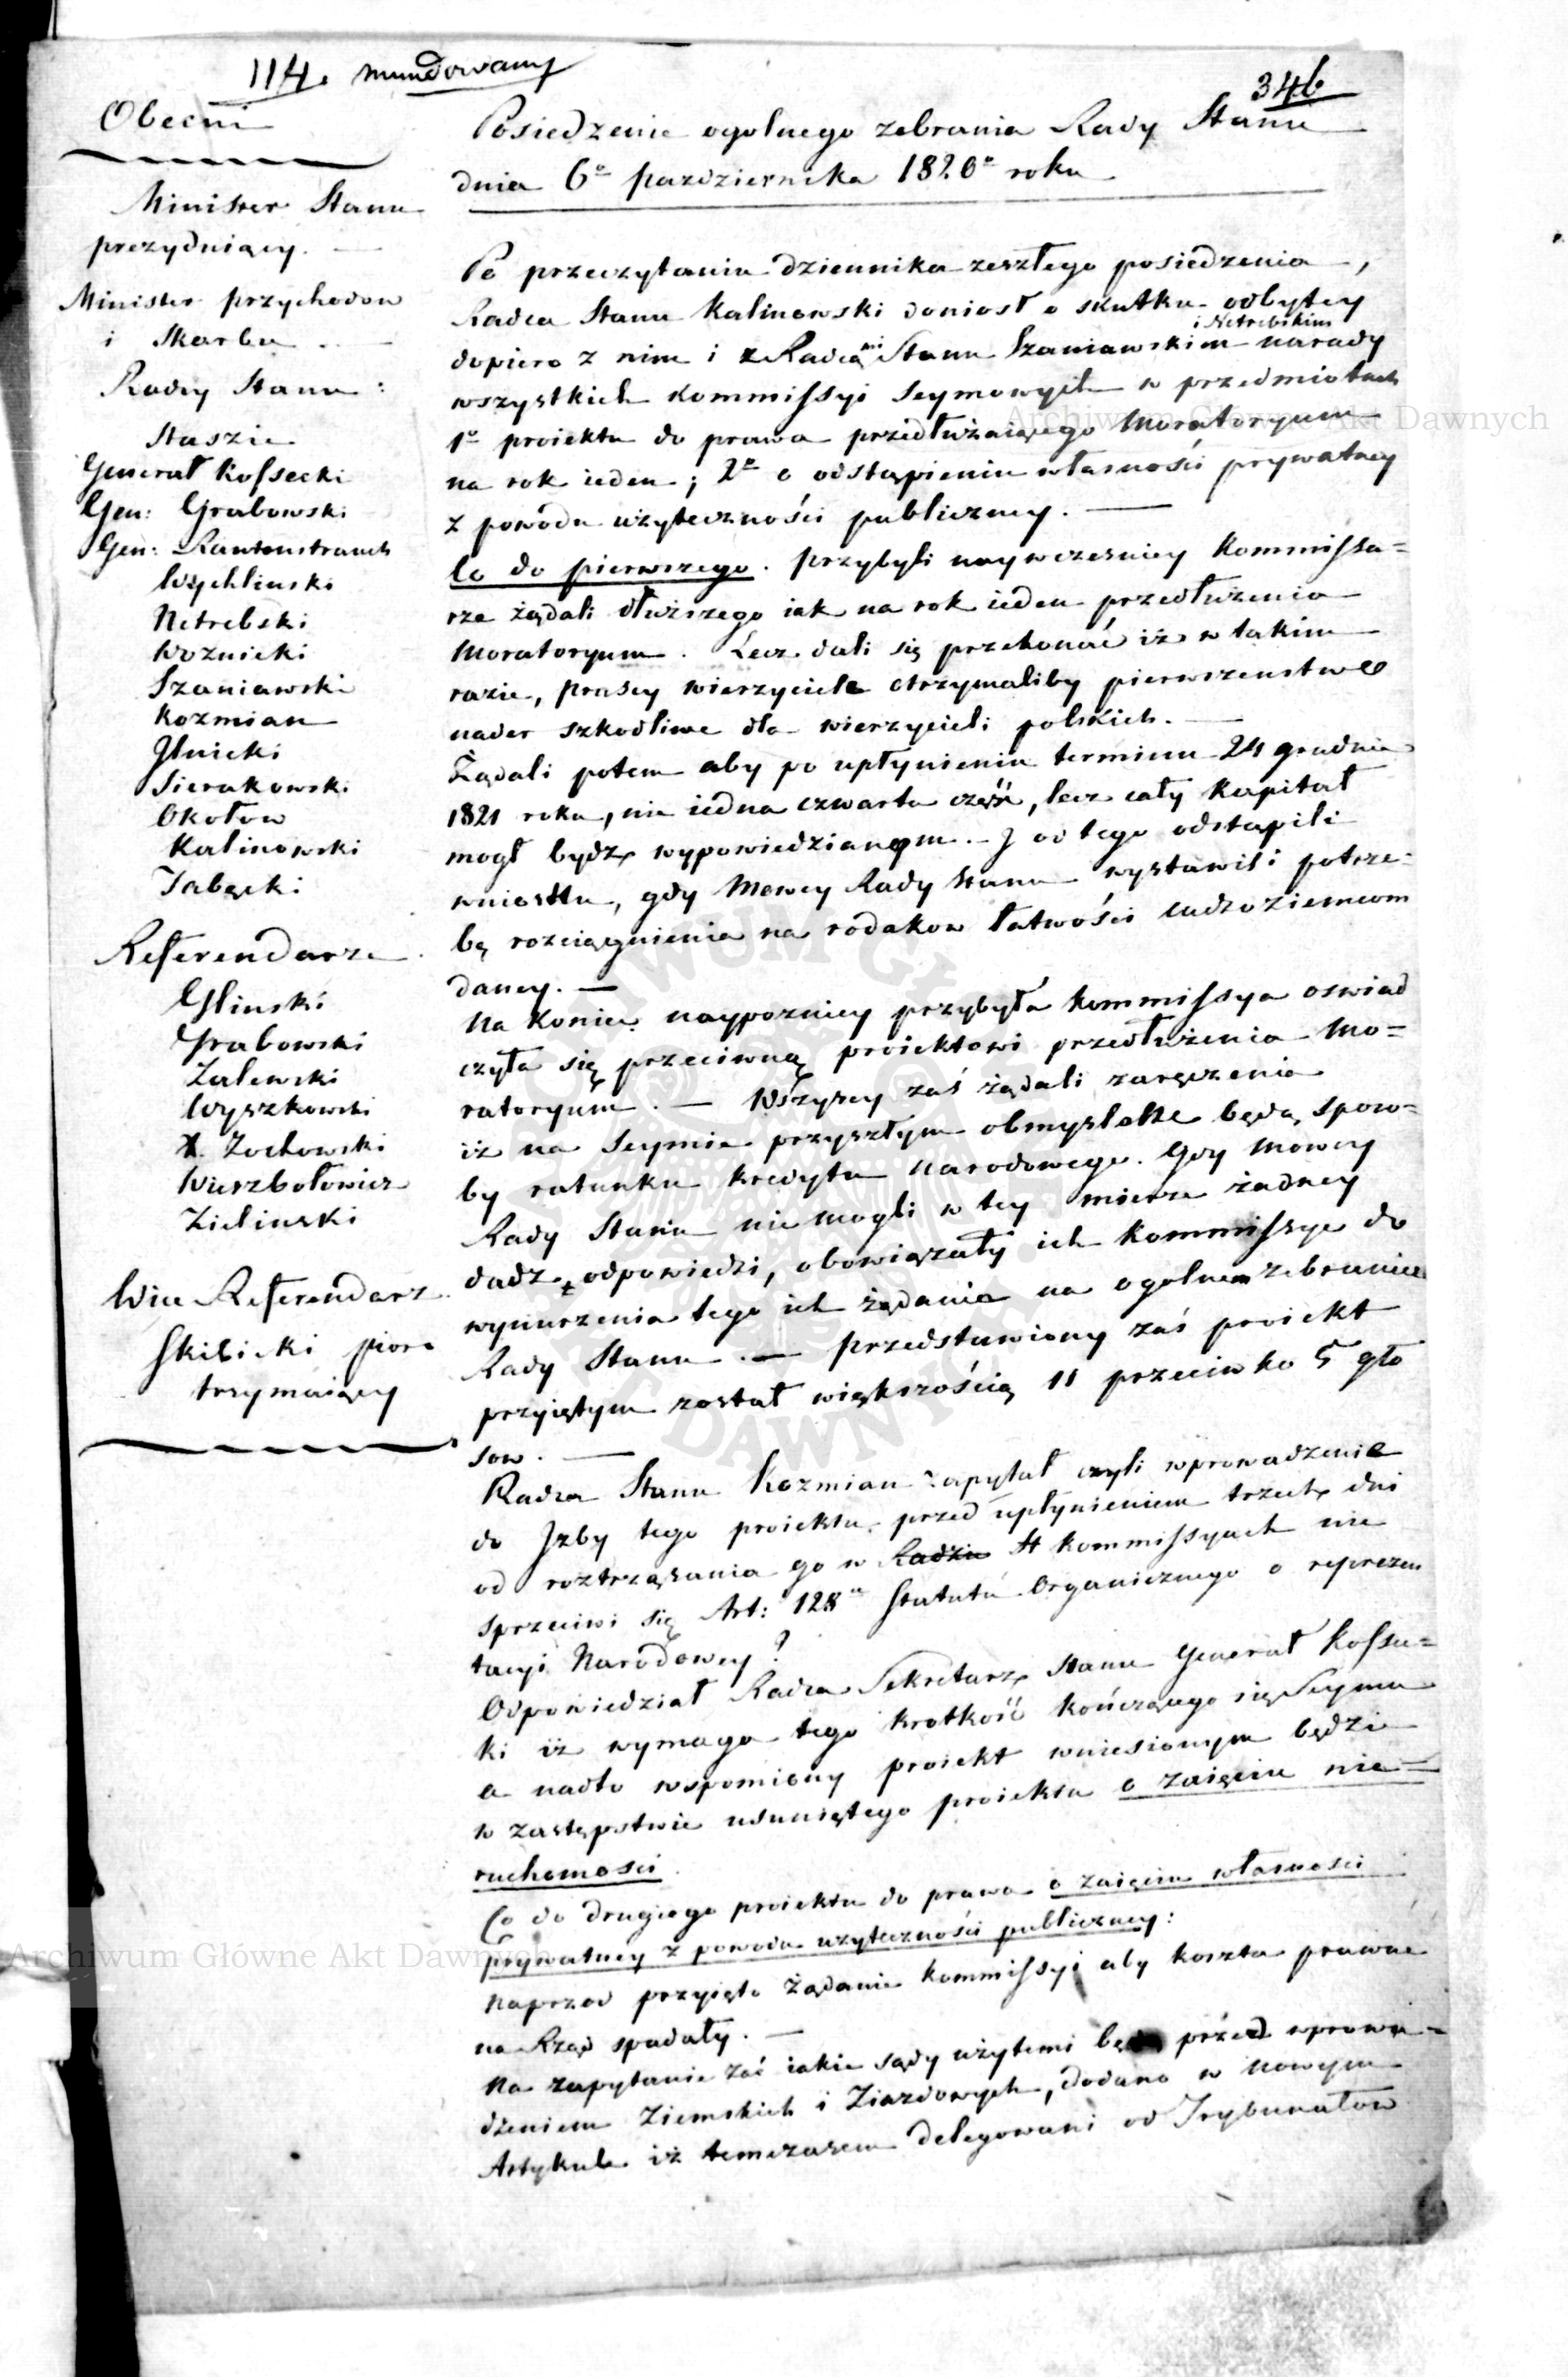 114. mundowany
346
Obecni
Minister Stanu
prezyduiący.
Minister przychodow
i Skarbu
Radcy Stanu:
Staszic
Generał Kossecki
Gen: Grabowski
Gen: Rautenstrauch
Wychlinski
Netrebski
Woznicki
Szaniawski
Kozmian
Jlnicki
Sierakowski
Okołow
Kalinowski
Tabęcki
Referendarze
Glinski
Grabowski
Zalewski
Wyszkowski
X. Zochowski
Wierzbołowicz
Zielinski
Wice Referendarz
Skibicki pioro
trzymaiący
Posiedzenie ogolnego zebrania Rady Stanu
dnia 6º pazdziernika 1820º roku
Po przeczytaniu dziennika zeszłego posiedzenia,
Radca Stanu Kalinowski doniosł o skutku odbytey
i Netrebskim
dopiero z nim i z Radcami Stanu Szaniawskim narady
wszystkich kommissyi Seymowych w przedmiotach
1º proiektu do prawa przedłużaiącego Moratoryum
na rok ieden; 2º o odstąpieniu własności prywatney
z powodu użyteczności publiczney.
Co do pierwszego. przybyli naywczesniey Kommissa=
rze żądali dłuższego iak na rok ieden przedłużenia
Moratoryum. Lecz dali się przekonać iż w takim
razie, pruscy wierzyciele otrzymaliby pierwszenstwo
nader szkodliwe dla wierzycieli polskich.
Żądali potem aby po upłynieniu terminu 24 grudnia
1821 roku, nie iedna czwarta część, lecz cały Kapitał
mogł bydz wypowiedzianym. J od tego odstąpili
wniosku, gdy Mowcy Rady Stanu wystawili potrze=
bę rozciągnienia na rodakow łatwości cudzoziemcom
daney.
Na koniec naypozniey przybyła kommissya oswiad
czyła się przeciwną proiektowi przedłużenia Mo=
ratoryum. Wszyscy zaś żądali zaręczenia
iż na Seymie przyszłym obmyslane będą spow=
by ratunku kredytu Narodowego. Gdy Mowcy
Rady Stanu nie mogli w tey mierze żadney
dadz odpowiedzi, obowiązały ich Kommissye do
wynurzenia tego ich żądania na ogolnem zebraniu
Rady Stanu. przedstawiony zaś proiekt
przyiętym został większością 11 przeciwko 5 gło
sow.
Radca Stanu Kozmian zapytał czyli wprowadzenie
do Jzby tego proiektu przed upłynieniem trzech dni
od roztrząsania go w Radzie kommissyach nie
sprzeciwi się Art: 128 Statutu Organicznego o reprezen
tacyi Narodowey?
Odpowiedział Radca Sekretarz Stanu Generał Kosse=
ki iż wymaga tego krotkość kończącego się Seymu
a nadto wspomiony proiekt wniesionym będzie
w zastępstwie usuniętego proiektu o zaięciu nie=
ruchomosci
Co do drugiego proiektu do prawa o zaięciu własności
prywatney z powodu użyteczności publiczney:
Naprzod przyięto żądanie kommissyi aby koszta prawne
na Rząd spadały.
Na zapytanie zaś iakie sądy użytemi będą przed wprowa=
dzeniem Ziemskich i Ziazdowych, dodano w nowym
Artykule iż temczasem delegowani od Trybunałow
Archiwum Główne Akt Dawnych
Archiwum Główne Akt Dawnych